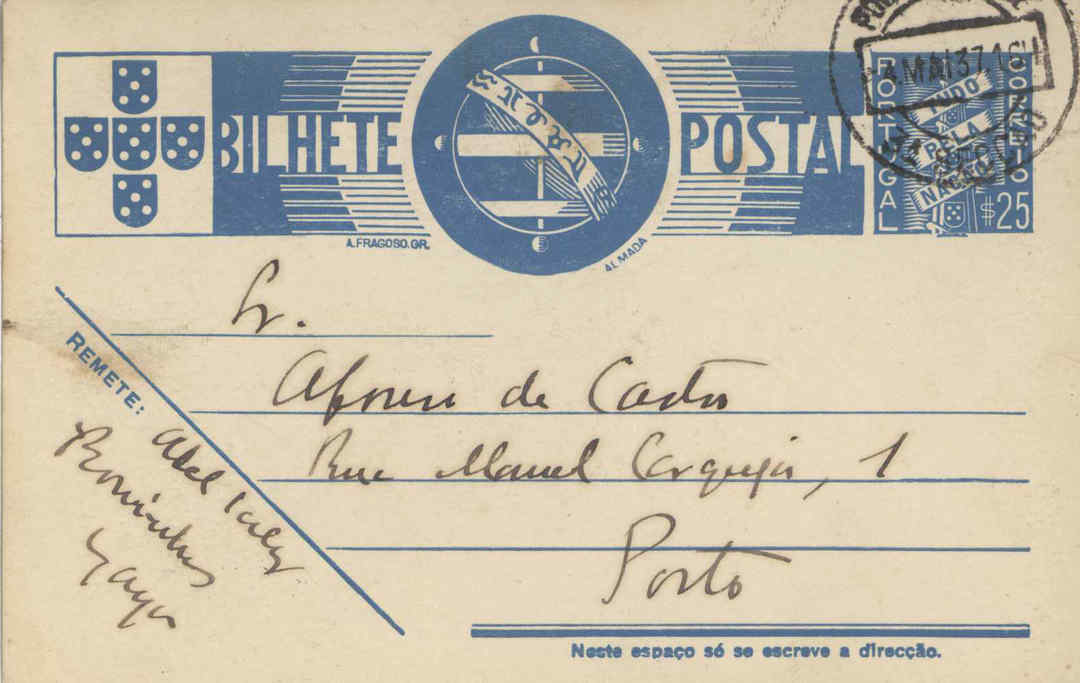 BILHETE POSTAL
PORTUGAL
CORREIO
TUDO
PELA
NAÇÃO
$25
4 MAI 37 16H
A. FRAGOSO. GR.
ALMADA
Sr.
Afonso de Castro
Rue Manuel Cerqueja, 1
Porto
REMETE:
Abel
Neste espaço só se escreve a direcção.